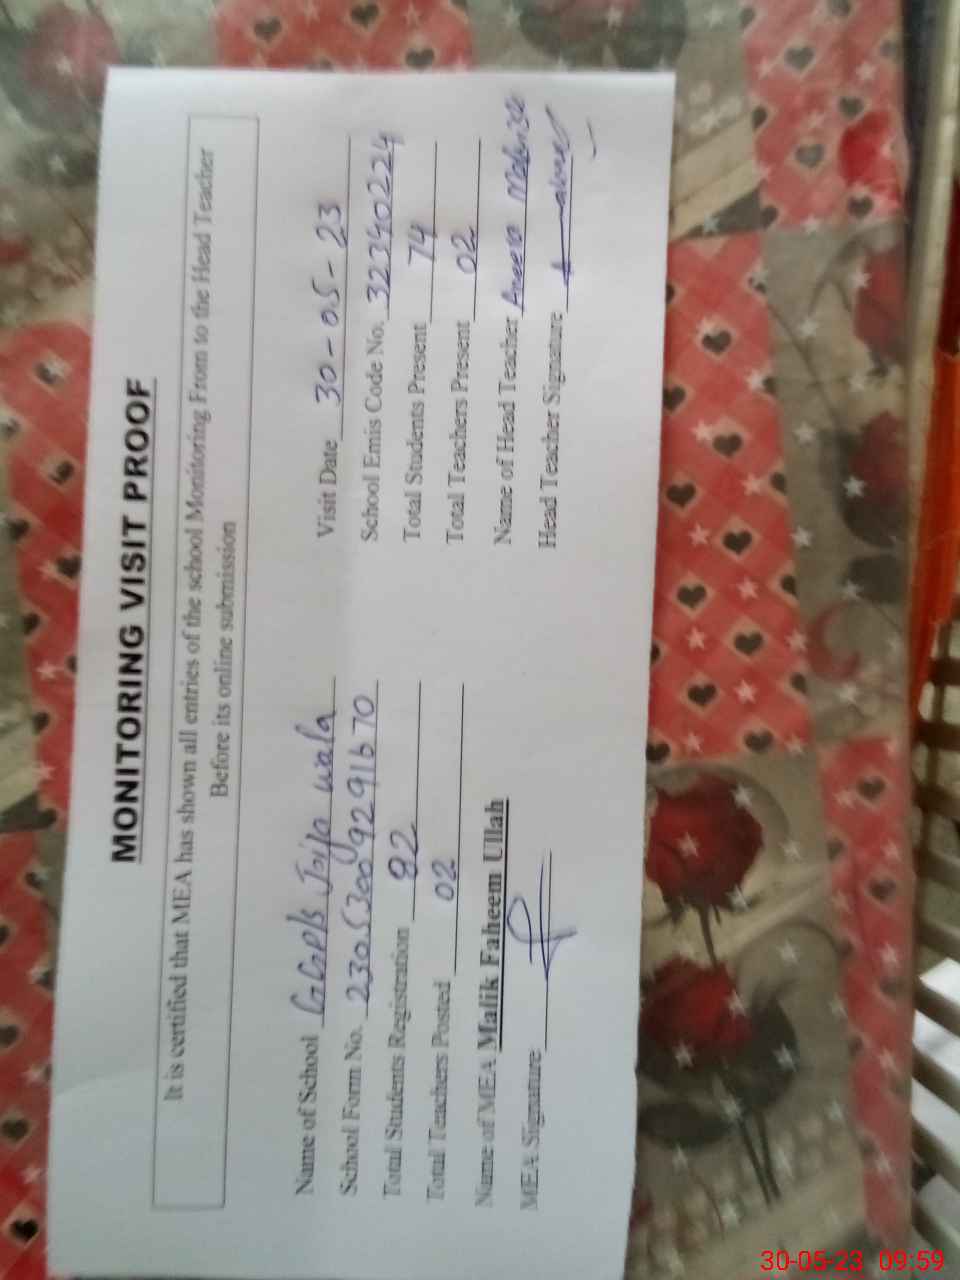 MONITORING VISIT PROOF
It is certified that MEA has shown all entries of the school Monitoring From to the Head Teacher
Before its online submission
Name of School GGPS Joiya wala
Visit Date 30-05-23
School Form No. 23053009291670
School Emis Code No. 32340224
Total Students Registration 82
Total Students Present 74
Total Teachers Posted 02
Total Teachers Present 02
Name of MEA Malik Faheem Ullah
Name of Head Teacher
MEA Signature
Head Teacher Signature
30-05-23 09:59